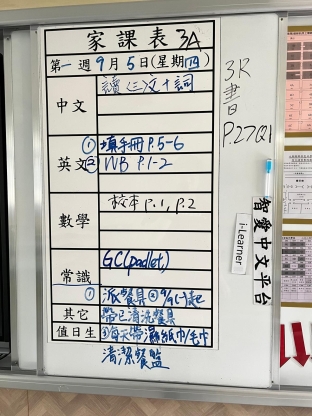 家課表 3A
第一週 9月5日(星期四)
中文 讀(三)文+詞
英文 ① 填手冊 P.5-6
② WB P.1-2
數學 校本 P.1, P.2
常識 GC(padlet)
① 派餐具 ② 9/9(一)起
其它 帶已清洗餐具
值日生 ③ 每天帶濕紙巾/毛巾
清潔餐盤
3R
書
P.27Q1
智愛中文平台
i-Learner